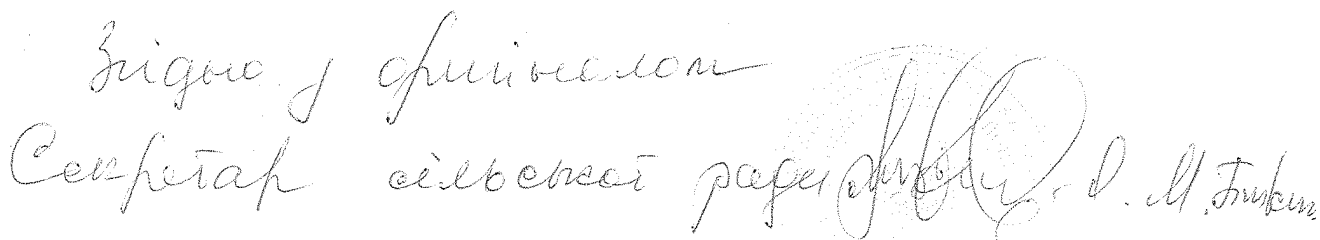 Згідно з оригіналом
Секретар сільської ради О. М.